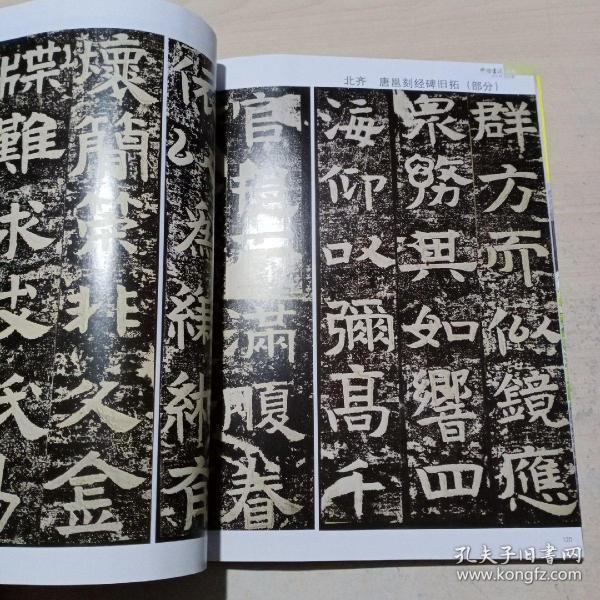 北齐 唐邕刻经碑旧拓（部分）
群方而似鏡應
眾務其如響四
海仰以彌高千
官
滿順眷
為練納有
懷簡策非久金
牒難求皮
120
孔夫子旧书网
www.kongfz.com